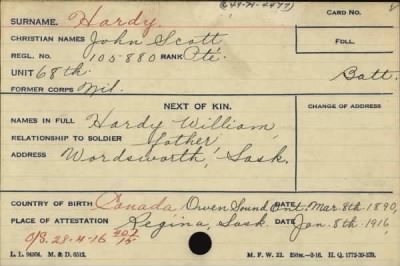 (649-H-4477)
SURNAME. Hardy. CARD NO.
CHRISTIAN NAMES John Scott
REGL. NO. 105880 RANK Pte. FOLL.
UNIT 68th. Batt.
FORMER CORPS Mil.
NEXT OF KIN. CHANGE OF ADDRESS
NAMES IN FULL Hardy William,
RELATIONSHIP TO SOLDIER father
ADDRESS Wordsworth, Sask.
COUNTRY OF BIRTH Canada, Owen Sound Ont. DATE Mar. 8th. 1890,
PLACE OF ATTESTATION Regina, Sask. DATE Jan. 8th. 1916,
O/S. 28-4-16
L. L. 94504. M. & D. 6512. M. F. W. 22. H. Q. 1772-39-339.